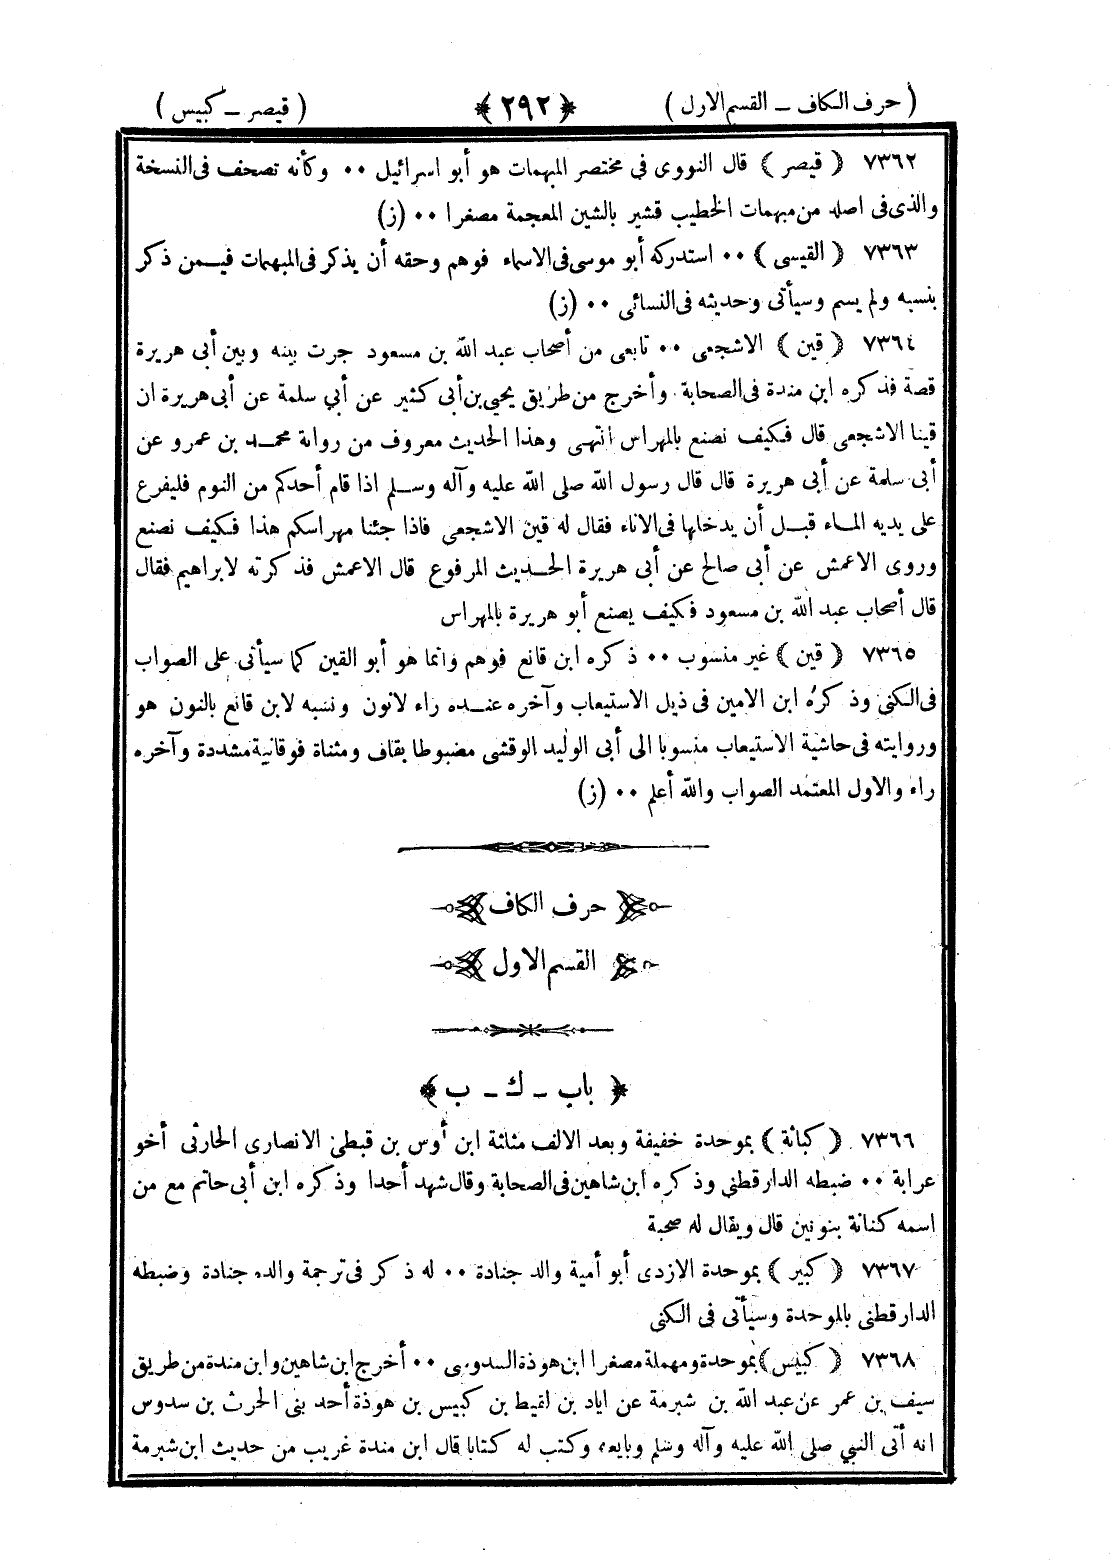 ( حرف الكاف ـ القسم الاول ) ﴿ ٢٩٢ ﴾ ( قيصر ـ كبيس )
٧٣٦٢ ( قيصر ) قال النووى فى مختصر المبهمات هو أبو اسرائيل ٠٠ وكأنه تصحف فى النسخة
والذى فى اصله من مبهمات الخطيب قشير بالشين المعجمة مصغرا ٠٠ (ز)
٧٣٦٣ ( القيسى ) ٠٠ استدركه أبو موسى فى الاسماء فوهم وحقه أن يذكر فى المبهمات فيمن ذكر
بنسبه ولم يسم وسيأتى وحديثه فى النسائى ٠٠ (ز)
٧٣٦٤ ( قين ) الاشجعى ٠٠ تابعى من أصحاب عبد الله بن مسعود جرت بينه وبين أبى هريرة
قصة فذكره ابن مندة فى الصحابة وأخرج من طريق يحيى بن أبى كثير عن أبي سلمة عن أبى هريرة ان
قينا الاشجعى قال فكيف نصنع بالمهراس انتهى وهذا الحديث معروف من رواية محمد بن عمرو عن
أبى سلمة عن أبى هريرة قال قال رسول الله صلى الله عليه وآله وسلم اذا قام أحدكم من النوم فليفرغ
على يديه الماء قبل أن يدخلها فى الاناء فقال له قين الاشجعى فاذا جئنا مهراسكم هذا فكيف نصنع
وروى الاعمش عن أبى صالح عن أبى هريرة الحديث المرفوع قال الاعمش فذكرته لابراهيم فقال
قال أصحاب عبد الله بن مسعود فكيف يصنع أبو هريرة بالمهراس
٧٣٦٥ ( قين ) غير منسوب ٠٠ ذكره ابن قانع فوهم وانما هو أبو القين كما سيأتى على الصواب
فى الكنى وذكره ابن الامين فى ذيل الاستيعاب وآخره عنده راء لانون ونسبه لابن قانع بالنون هو
وروايته فى حاشية الاستيعاب منسوبا الى أبى الوليد الوقشى مضبوطا بقاف ومثناة فوقانية مشددة وآخره
راء والاول المعتمد الصواب والله أعلم ٠٠ (ز)
حرف الكاف
القسم الاول
﴿ باب ـ ك ـ ب ﴾
٧٣٦٦ ( كباثة ) بموحدة خفيفة وبعد الالف مثلثة ابن أوس بن قيظى الانصارى الحارثى أخو
عرابة ٠٠ ضبطه الدارقطنى وذكره ابن شاهين فى الصحابة وقال شهد أحدا وذكره ابن أبى حاتم مع من
اسمه كنانة بنونين قال ويقال له صحبة
٧٣٦٧ ( كبير ) بموحدة الازدى أبو أمية والد جنادة ٠٠ له ذكر فى ترجمة والده جنادة وضبطه
الدارقطنى بالموحدة وسيأتى فى الكنى
٧٣٦٨ ( كبيس ) بموحدة ومهملة مصغرا ابن هوذة السدوسى ٠٠ أخرج ابن شاهين وابن مندة من طريق
سيف بن عمر عن عبد الله بن شبرمة عن اياد بن لقيط بن كبيس بن هوذة أحد بنى الحرث بن سدوس
انه أتى النبي صلى الله عليه وآله وسلم وبايعه وكتب له كتابا قال ابن مندة غريب من حديث ابن شبرمة